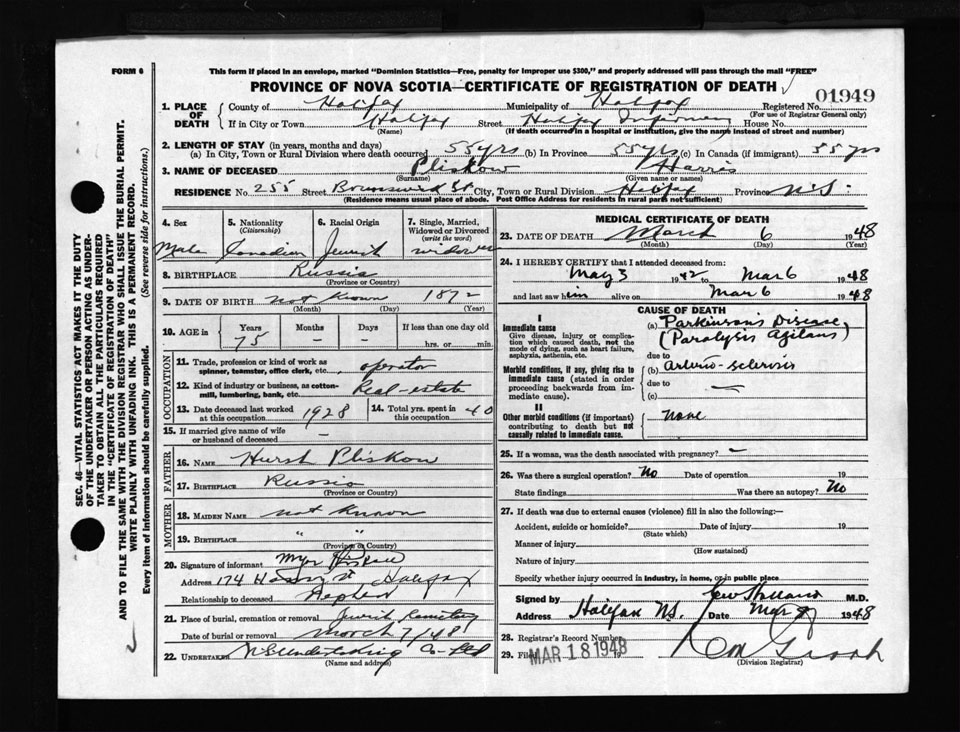 FORM 6
This form if placed in an envelope, marked "Dominion Statistics—Free, penalty for improper use $300," and properly addressed will pass through the mail "FREE"
PROVINCE OF NOVA SCOTIA—CERTIFICATE OF REGISTRATION OF DEATH
01949
1. PLACE OF DEATH
County of Halifax Municipality of Halifax Registered No.
(For use of Registrar General only)
If in City or Town Halifax Street Halifax Infirmary House No.
(Name) (If death occurred in a hospital or institution, give the name instead of street and number)
2. LENGTH OF STAY (in years, months and days)
(a) In City, Town or Rural Division where death occurred 55 yrs (b) In Province 55 yrs (c) In Canada (if immigrant) 55 yrs
3. NAME OF DECEASED Pliskow Harris
(Surname) (Given name or names)
RESIDENCE No. 255 Street Brunswick St. City, Town or Rural Division Halifax Province N.S.
(Residence means usual place of abode. Post Office Address for residents in rural parts not sufficient)
4. Sex Male
5. Nationality (Citizenship) Canadian
6. Racial Origin Jewish
7. Single, Married, Widowed or Divorced (write the word) widower
8. BIRTHPLACE Russia
(Province or Country)
9. DATE OF BIRTH not known 1872
(Month) (Day) (Year)
10. AGE in Years Months Days If less than one day old
75 – – hrs. or min.
OCCUPATION
11. Trade, profession or kind of work as spinner, teamster, office clerk, etc. operator
12. Kind of industry or business, as cotton-mill, lumbering, bank, etc. Real-estate
13. Date deceased last worked at this occupation 1928
14. Total yrs. spent in this occupation 40
15. If married give name of wife or husband of deceased –
FATHER
16. NAME Hursh Pliskow
17. BIRTHPLACE Russia
(Province or Country)
MOTHER
18. MAIDEN NAME not known
19. BIRTHPLACE " "
(Province or Country)
20. Signature of informant
Address 174 Halifax
Relationship to deceased Nephew
21. Place of burial, cremation or removal Jewish Cemetery
Date of burial or removal March 7/48
22. UNDERTAKER N S Undertaking Co-Ltd
(Name and address)
MEDICAL CERTIFICATE OF DEATH
23. DATE OF DEATH March 6 1948
(Month) (Day) (Year)
24. I HEREBY CERTIFY that I attended deceased from:
May 3 1942 to Mar 6 1948
and last saw him alive on Mar 6 1948
CAUSE OF DEATH
I
Immediate cause
Give disease, injury or complication which caused death, not the mode of dying, such as heart failure, asphyxia, asthenia, etc.
(a) Parkinson's Disease,
(Paralysis Agitans)
due to
Morbid conditions, if any, giving rise to immediate cause (stated in order proceeding backwards from immediate cause).
(b) Arterio-sclerosis
due to –
(c)
II
Other morbid conditions (if important) contributing to death but not causally related to immediate cause.
None
25. If a woman, was the death associated with pregnancy? –
26. Was there a surgical operation? No Date of operation 19
State findings Was there an autopsy? No
27. If death was due to external causes (violence) fill in also the following:—
Accident, suicide or homicide? Date of injury 19
(State which)
Manner of injury
(How sustained)
Nature of injury
Specify whether injury occurred in industry, in home, or in public place
Signed by M.D.
Address Halifax N.S. Date Mar 1948
28. Registrar's Record Number
29. Filed MAR 18 1948 19
(Division Registrar)
SEC. 46—VITAL STATISTICS ACT MAKES IT THE DUTY
OF THE UNDERTAKER OR PERSON ACTING AS UNDER-
TAKER TO OBTAIN ALL THE PARTICULARS REQUIRED
IN THE "CERTIFICATE OF REGISTRATION OF DEATH"
AND TO FILE THE SAME WITH THE DIVISION REGISTRAR WHO SHALL ISSUE THE BURIAL PERMIT.
WRITE PLAINLY WITH UNFADING INK. THIS IS A PERMANENT RECORD.
Every item of information should be carefully supplied. (See reverse side for instructions.)